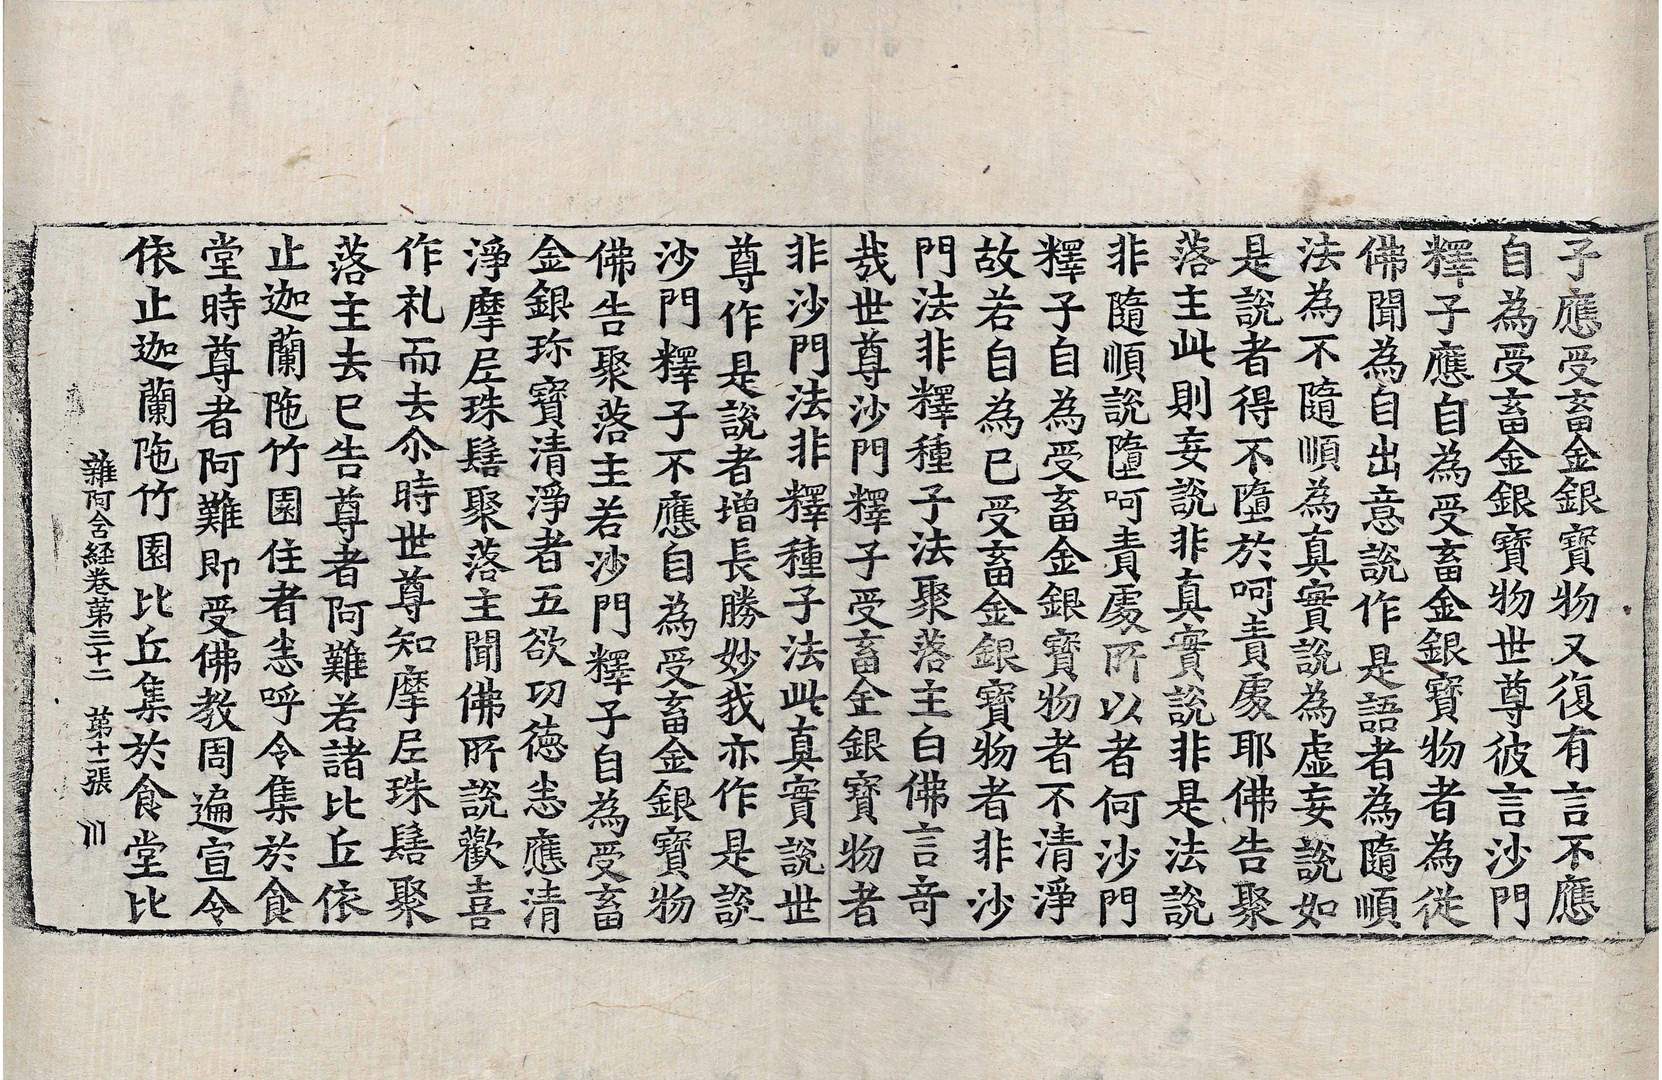 子應受畜金銀寶物又復有言不應
自為受畜金銀寶物世尊彼言沙門
釋子應自為受畜金銀寶物者為從
佛聞為自出意說作是語者為隨順
法為不隨順為真實說為虛妄說如
是說者得不墮於呵責處耶佛告聚
落主此則妄說非真實說非是法說
非隨順說墮呵責處所以者何沙門
釋子自為受畜金銀寶物者不清淨
故若自為已受畜金銀寶物者非沙
門法非釋種子法聚落主白佛言奇
哉世尊沙門釋子受畜金銀寶物者
非沙門法非釋種子法此真實說世
尊作是說者增長勝妙我亦作是說
沙門釋子不應自為受畜金銀寶物
佛告聚落主若沙門釋子自為受畜
金銀珎寶清淨者五欲功德悉應清
淨摩尼珠髻聚落主聞佛所說歡喜
作礼而去尒時世尊知摩尼珠髻聚
落主去已告尊者阿難若諸比丘依
止迦蘭陁竹園住者悉呼令集於食
堂時尊者阿難即受佛教周遍宣令
依止迦蘭陁竹園比丘集於食堂比
雜阿含経卷第三十二 第十一張